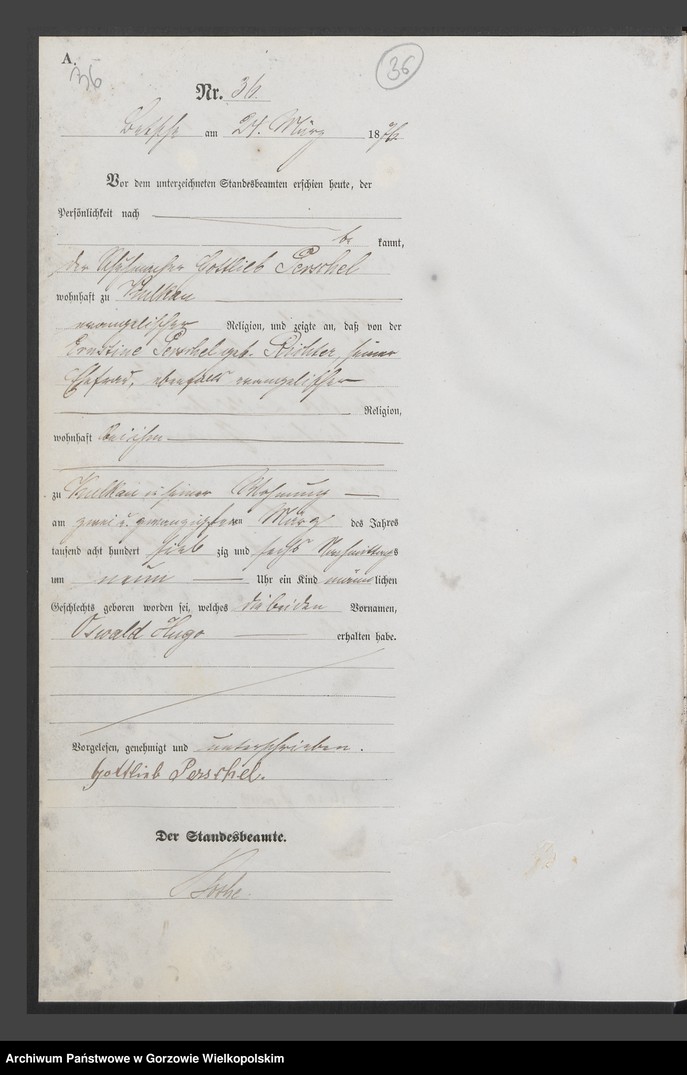 A.
36
36
Nr. 36.
Betsche am 24. März 1876
Vor dem unterzeichneten Standesbeamten erschien heute, der
Persönlichkeit nach
be kannt,
der Schuhmacher Gottlieb Perschel
wohnhaft zu Kulkau
evangelischer Religion, und zeigte an, daß von der
Ernstine Perschel geb. Richter, seiner
Ehefrau, ebenfalls evangelischer
Religion,
wohnhaft bei ihm
zu Kulkau in seiner Wohnung
am zwei u. zwanzigsten März des Jahres
tausend acht hundert sieb zig und sechs Nachmittags
um neun Uhr ein Kind männlichen
Geschlechts geboren worden sei, welches die beiden Vornamen,
Oswald Hugo erhalten habe.
Vorgelesen, genehmigt und unterschrieben.
Gottlieb Perschel.
Der Standesbeamte.
Archiwum Państwowe w Gorzowie Wielkopolskim